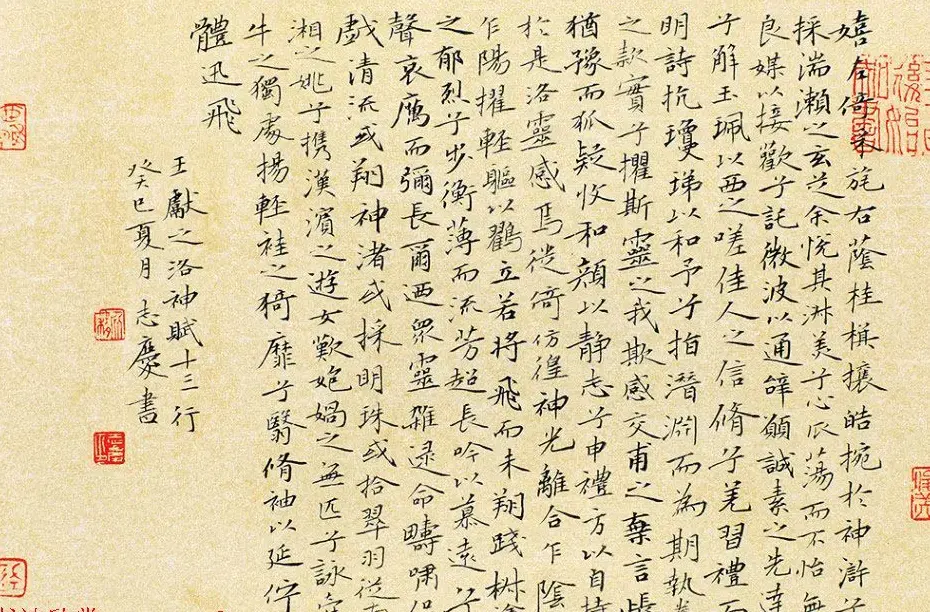 嬉左倚采旄右蔭桂棋攘皓捥於神滸兮
採湍瀨之玄芝余悅其淑美兮心蕩而不怡無
良媒以接歡兮託微波以通辝願誠素之先達
兮解玉珮以要之嗟佳人之信脩兮羌習禮而
明詩抗瓊珶以和予兮指潛淵而為期執眷
之款實兮懼斯靈之我欺感交甫之棄言悵
猶豫而狐疑收和顏以静志兮申禮方以自持
於是洛靈感焉徙倚仿徨神光離合乍陰
乍陽擢軽軀以鶴立若將飛而未翔踐椒塗
之郁烈兮步衡薄而流芳超長吟以慕遠兮
聲哀厲而彌長爾迺眾靈雜遝命疇嘯侶
戯清流或翔神渚或採明珠或拾翠羽從南
湘之姚兮携漢濱之遊女歎媧之無匹兮詠牽
牛之獨處揚軽袿之猗靡兮翳脩袖以延佇
體迅飛
王獻之洛神賦十三行
癸巳夏月志慶書